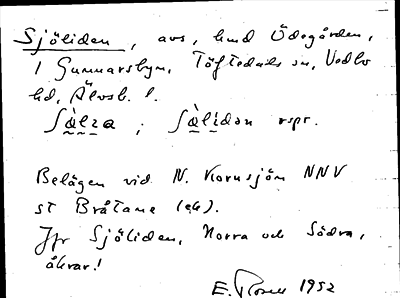 Sjöliden, avs, hmd Ödegården,
1 Gunnarsbyn, Töftedals sn, Vedbo
hd, Älvsb. l.
Sälıa ; Sälıdən rspr.
Belägen vid N. Kornsjön NNV
st Bråtane (ek).
Jfr Sjöliden, Norra och Södra,
åkrar!
E. Rosell 1952